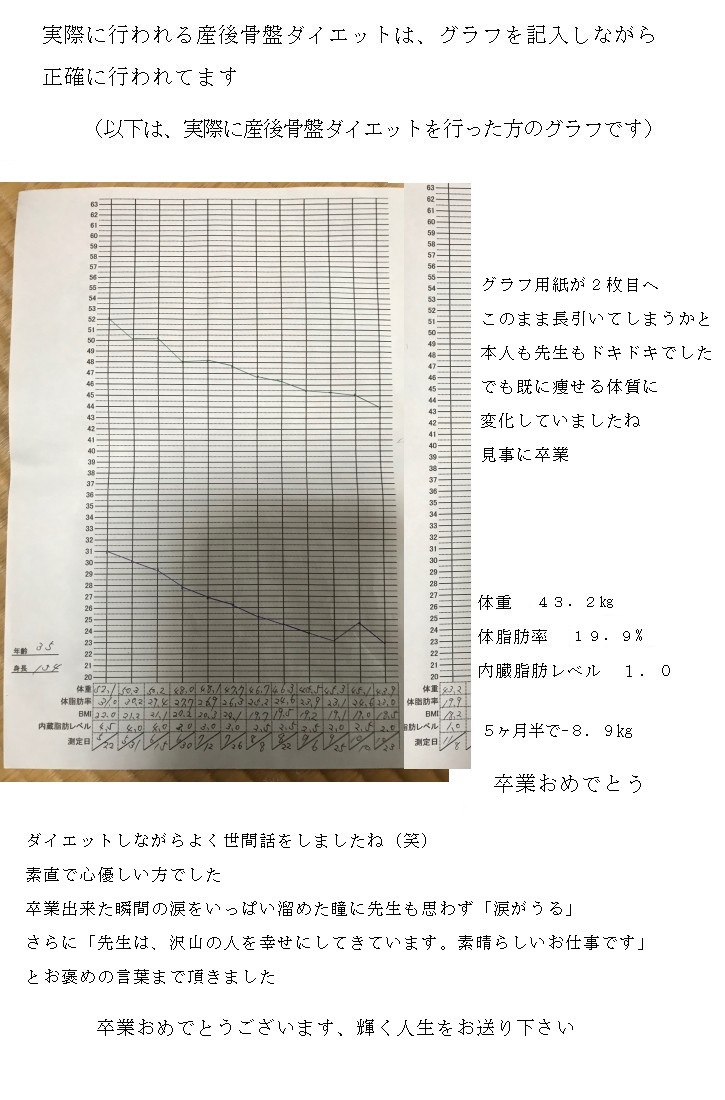 実際に行われる産後骨盤ダイエットは、グラフを記入しながら
正確に行われてます
（以下は、実際に産後骨盤ダイエットを行った方のグラフです）
63
62
61
60
59
58
57
56
55
54
53
52
51
50
49
48
47
46
45
44
43
42
41
40
39
38
37
36
35
34
33
32
31
30
29
28
27
26
25
24
23
22
21
20
年齢 35
身長 154
体重 52.1 50.2 50.2 48.0 48.1 47.7 46.7 46.3 45.5 45.3 45.1 43.9
体脂肪率 31.0 30.2 29.4 27.7 26.9 26.3 25.2 24.6 23.9 23.1 24.6 23.0
BMI 22.0 21.2 21.1 20.2 20.3 20.1 19.7 19.5 19.2 19.1 19.0 18.5
内蔵脂肪レベル 4.5 4.0 4.0 3.0 3.0 2.5 2.5 2.5 2.0 2.5 2.0
測定日 5/22 5/31 6/15 6/30 7/12 7/26 8/8 8/22 9/6 9/25
63
62
61
60
59
58
57
56
55
54
53
52
51
50
49
48
47
46
45
44
43
42
41
40
39
38
37
36
35
34
33
32
31
30
29
28
27
26
25
24
23
22
21
20
体重 43.2
体脂肪率 19.9
BMI 18.2
脂肪レベル 1.0
測定日 11/8
グラフ用紙が２枚目へ
このまま長引いてしまうかと
本人も先生もドキドキでした
でも既に痩せる体質に
変化していましたね
見事に卒業
体重　４３．２㎏
体脂肪率　１９．９％
内臓脂肪レベル　１．０
５ヶ月半で-８．９㎏
卒業おめでとう
ダイエットしながらよく世間話をしましたね（笑）
素直で心優しい方でした
卒業出来た瞬間の涙をいっぱい溜めた瞳に先生も思わず「涙がうる」
さらに「先生は、沢山の人を幸せにしてきています。素晴らしいお仕事です」
とお褒めの言葉まで頂きました
卒業おめでとうございます、輝く人生をお送り下さい